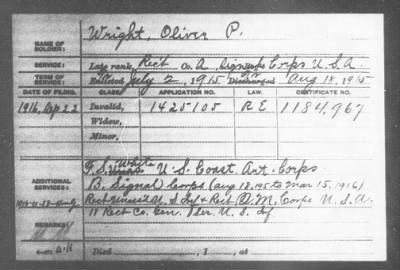 Wright, Oliver P.
NAME OF SOLDIER:
SERVICE: Late rank, Rect Co. A, Signal Corps U.S.A.
TERM OF SERVICE: Enlisted July 2, 1915 Discharged Aug. 18, 1915
DATE OF FILING. CLASS. APPLICATION NO. LAW. CERTIFICATE NO.
1916, Sep 22 Invalid, 1425105 R E 1184,967
Widow,
Minor,
White
ADDITIONAL SERVICES: U.S. Coast Art. Corps
B. Signal Corps (Aug 18, 1915 to Mar 15, 1916)
U.S. Inf & Rect. Q.M. Corps U.S.A.
18 Rect Co. Gen. Ser. U.S. Inf
REMARKS:
Died , 1 , at